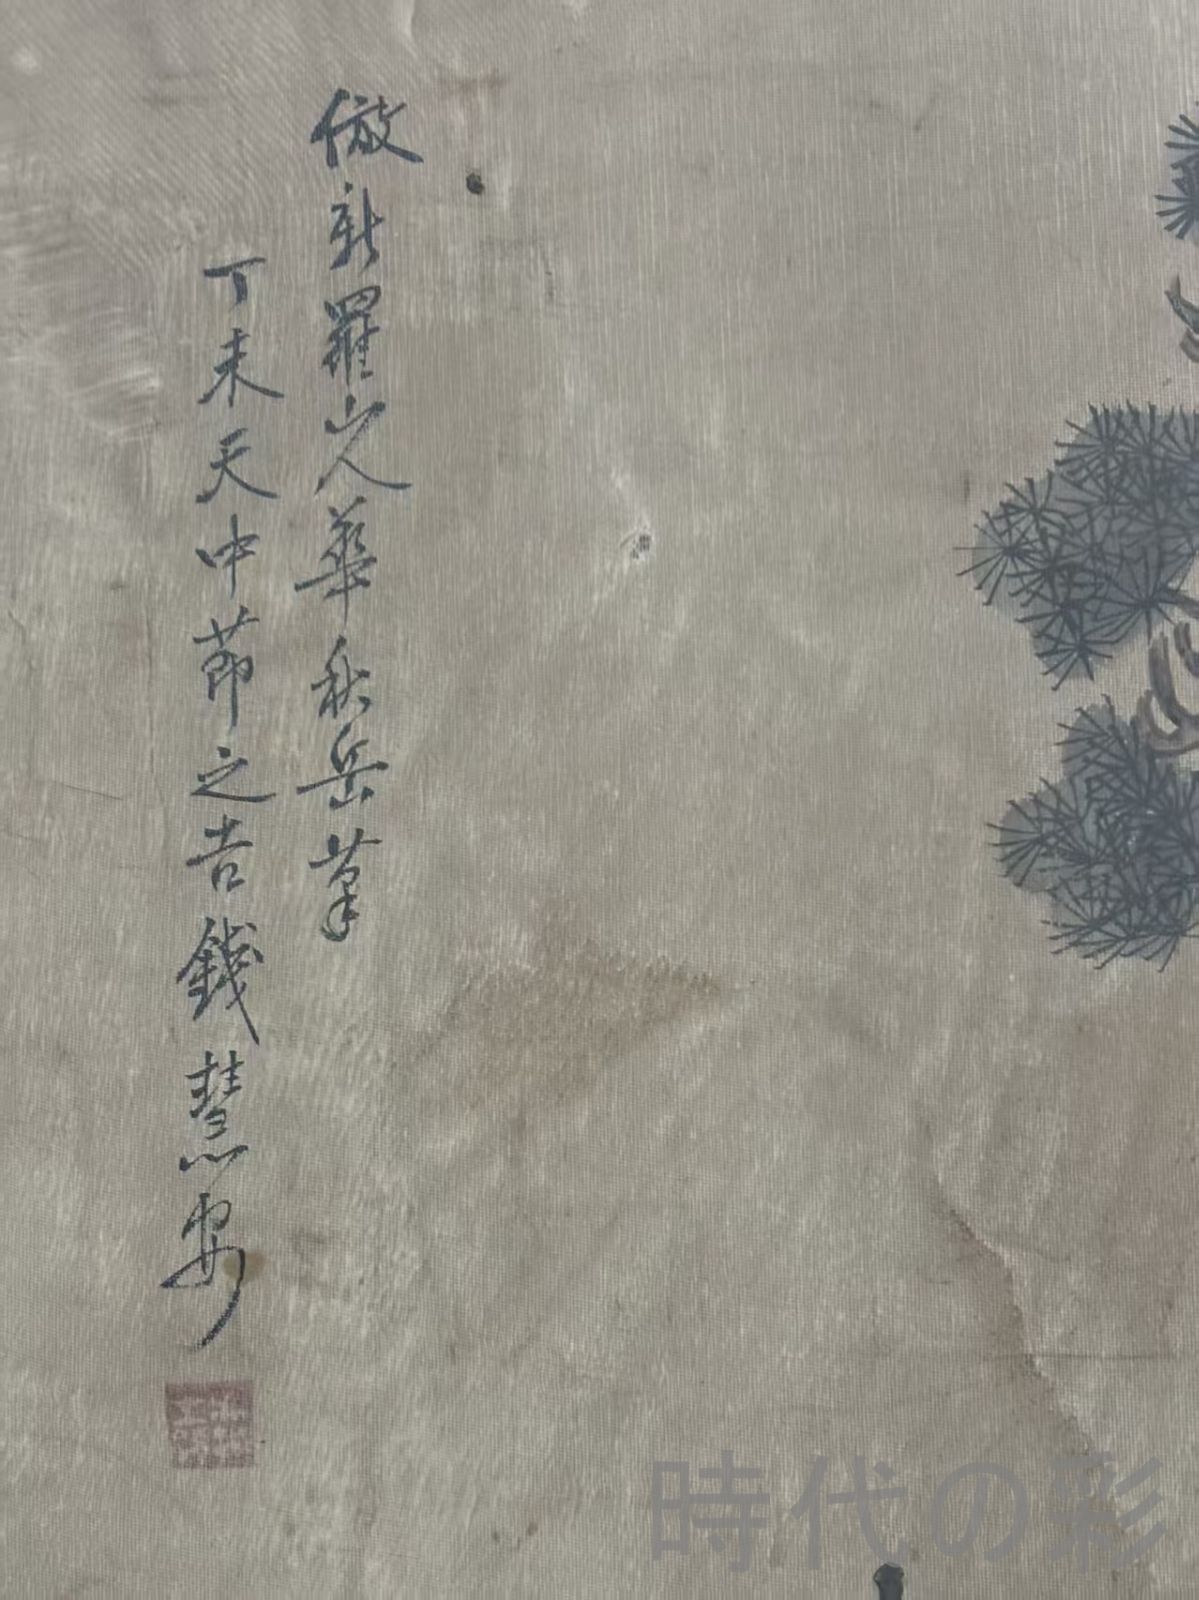 倣新羅山人華秋岳筆
丁未天中節之吉錢慧安
時代の彩